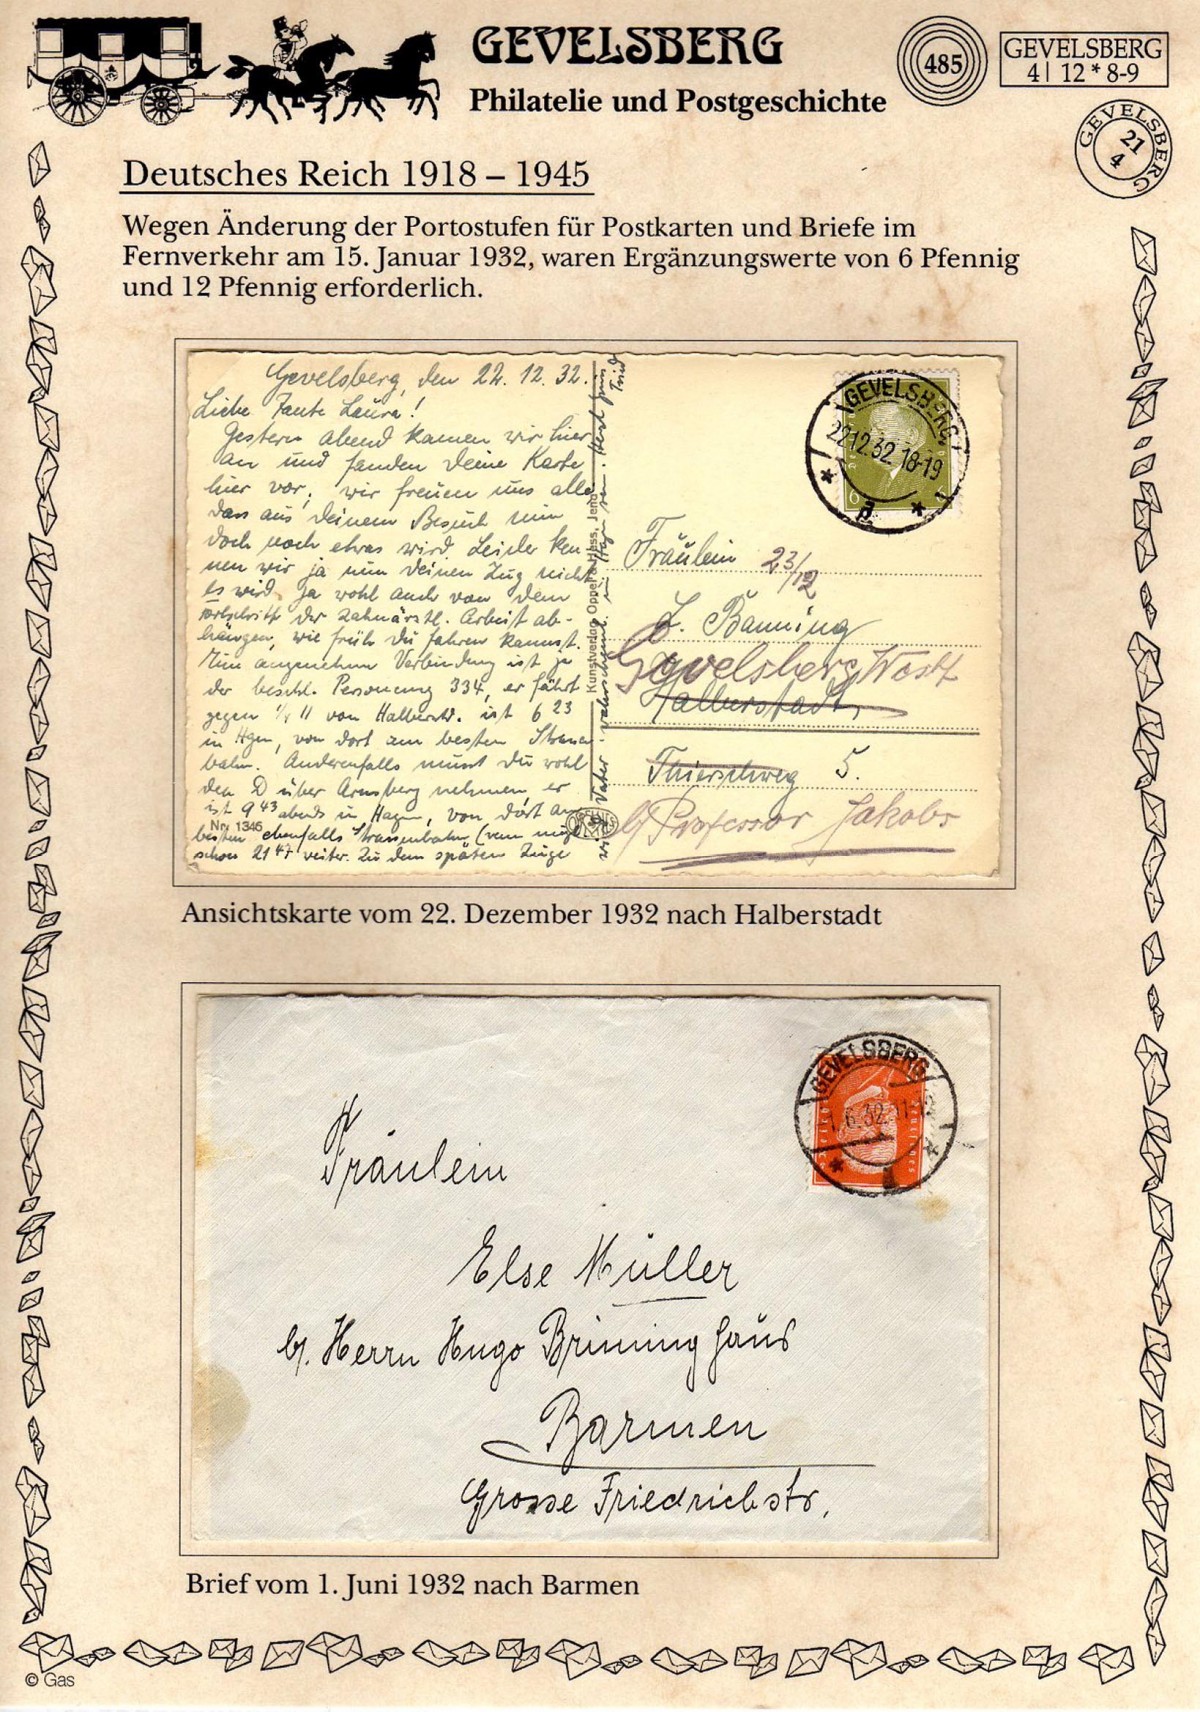 GEVELSBERG
Philatelie und Postgeschichte
485
GEVELSBERG
4| 12 * 8-9
GEVELSBERG
21
4
Deutsches Reich 1918 – 1945
Wegen Änderung der Portostufen für Postkarten und Briefe im
Fernverkehr am 15. Januar 1932, waren Ergänzungswerte von 6 Pfennig
und 12 Pfennig erforderlich.
Gevelsberg, den 22. 12. 32.
Liebe Tante Laura!
Gestern abend kamen wir hier
an und fanden Deine Karte
hier vor, wir freuen uns alle
dass aus Deinem Besuch nun
doch noch etwas wird. Leider ken-
nen wir ja nun Deinen Zug nicht
Es wird ja wohl auch von dem
Fortschritt der zahnärztl. Arbeit ab-
hängen, wie früh Du fahren kannst.
Eine angenehme Verbindung ist ja
der beschl. Personenzug 334, er fährt
gegen 1/2 11 von Halberstd. ist 6 23
in Hgn, von dort am besten Strassen-
bahn. Anderenfalls musst Du wohl
den D über Arnsberg nehmen, er
ist 9 43 abends in Hagen, von dort am
besten ebenfalls Strassenbahn
schon 21 47 weiter. Zu dem späten Zuge
Nr. 1346
Kunstverlag Oppel & Hess, Jena
GEVELSBERG
22.12.32.18-19
a
6
Fräulein 23/12
L. Banning
Gevelsberg West
Halberstadt,
Thierschweg 5.
b/ Professor Jakobs
Ansichtskarte vom 22. Dezember 1932 nach Halberstadt
GEVELSBERG
1.6.32.11-12
Fräulein
Else Müller
b/. Herrn Hugo Brininghaus
Barmen
Grosse Friedrichstr.
Brief vom 1. Juni 1932 nach Barmen
© Gas